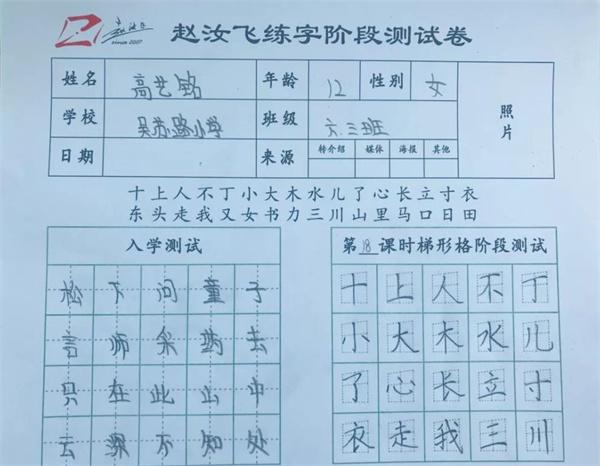 赵汝飞
since 2007
赵汝飞练字阶段测试卷
姓名 高艺铭 年龄 12 性别 女 照片
学校 吴苏路小学 班级 六.三班
日期 来源 转介绍 媒体 海报 其他
十上人不丁小大木水儿了心长立寸衣
东头走我又女书力三川山里马口日田
入学测试
松下问童子
言师采药去
只在此山中
云深不知处
第18课时梯形格阶段测试
十上人不于
小大木水儿
了心长立寸
衣走我三川